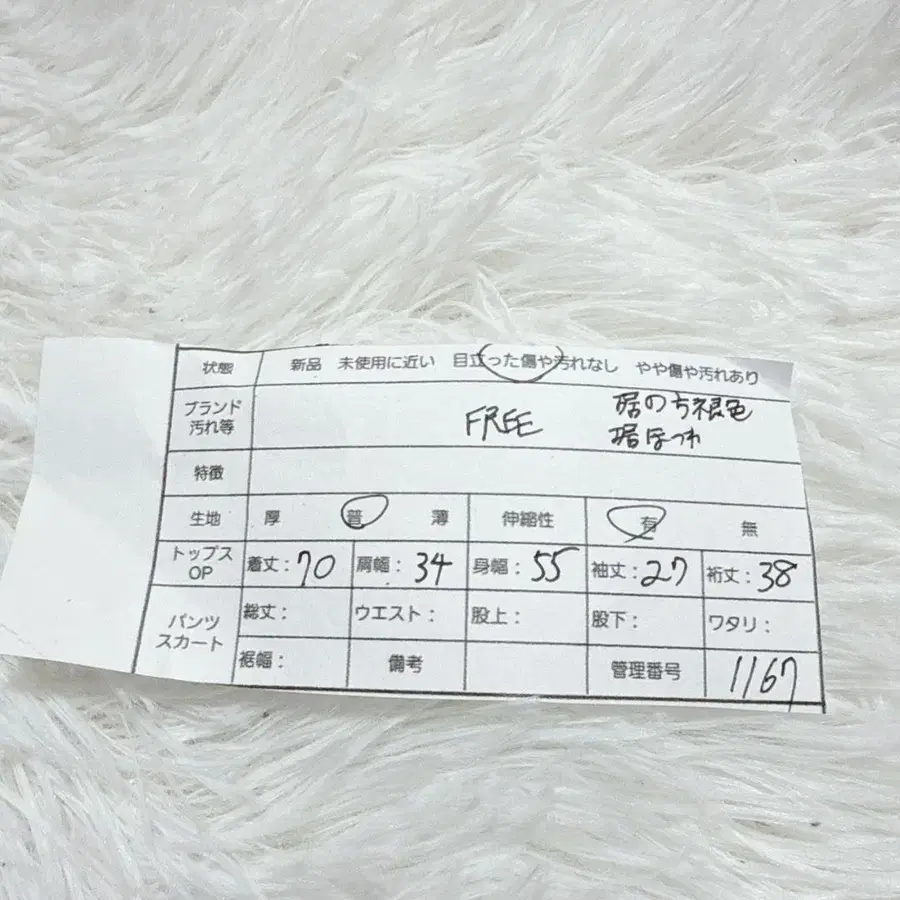 状態 新品 未使用に近い 目立った傷や汚れなし やや傷や汚れあり
ブランド 汚れ等 FREE 裾のち褪色
裾ほつれ
特徴
生地 厚 普 薄 伸縮性 有 無
トップス OP 着丈:70 肩幅:34 身幅:55 袖丈:27 裄丈:38
パンツ スカート 総丈: ウエスト: 股上: 股下: ワタリ:
裾幅: 備考 管理番号 1167